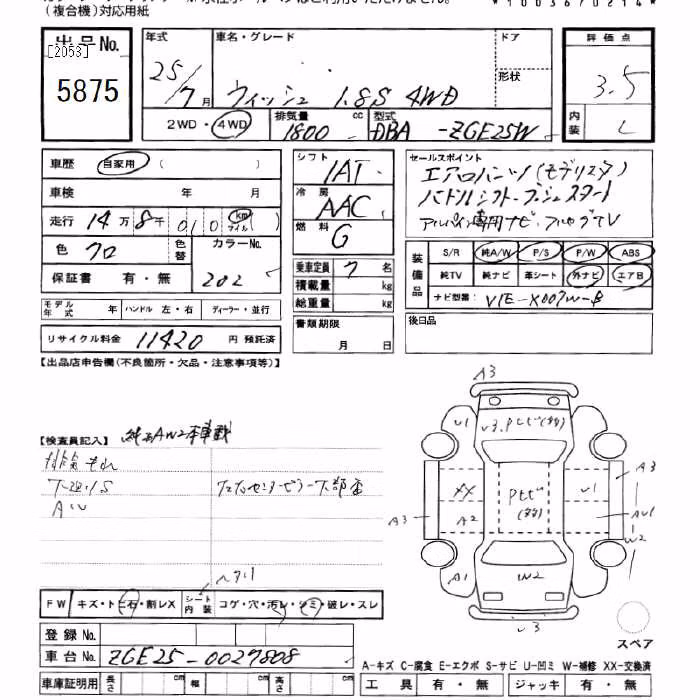 (複合機)対応用紙
出品No.
[2053]
5875
年式 25/7月
車名・グレード ウィッシュ 1.8S 4WD
ドア
形状
2WD・4WD
排気量 1800 cc
型式 DBA -ZGE25W
評価点 3.5
内装 C
車歴 自家用 ( )
車検 年 月
走行 14万8千010 km マイル
色 クロ
色替
カラーNo. 202
保証書 有・無
モデル年式 年 ハンドル 左・右 ディーラー・並行
リサイクル料金 11420 円 預託済
シフト IAT
冷房 AAC
燃料 G
乗車定員 7 名
積載量 kg
総重量 kg
書類期限
月 日
セールスポイント
エアロパンパ(モデリスタ)
パドルシフト・プッシュスタート
アルパイン専用ナビ・フルセグTV
装備品
S/R 純A/W P/S P/W ABS
純TV 純ナビ 革シート 外ナビ エアB
ナビ型番: VIE-X007W-B
後日品
【出品店申告欄(不良箇所・欠品・注意事項等)】
【検査員記入】 純正AW2本車載
排気もれ
下廻りS
AW
FW キズ・トビ石・割レX
シート内装 コゲ・穴・汚レ・シミ・破レ・スレ
登録No.
車台No. ZGE25-0029808
車庫証明用 長さ cm 幅 cm 高さ cm
A3
U1
U3 PとビI(タタ)
XX
A2
Pとビ(タタ)
U1
A3
A3
AU1
W2
A1
W2
U3
スペア
A-キズ C-腐食 E-エクボ S-サビ U-凹ミ W-補修 XX-交換済
工具 有・無 ジャッキ 有・無